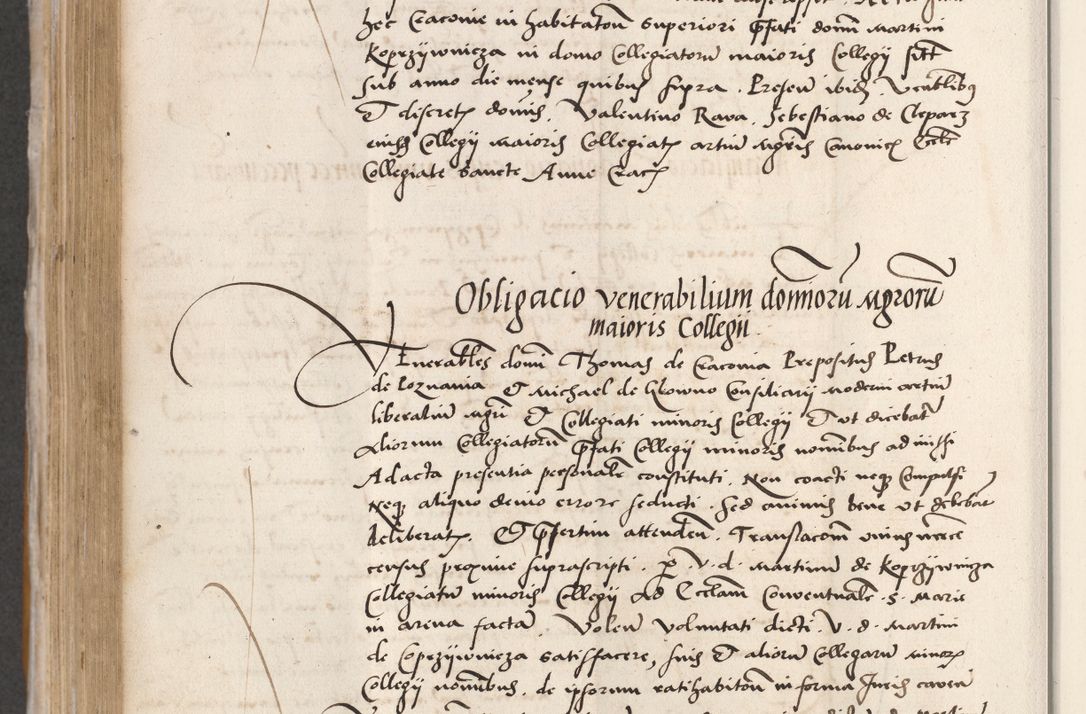 hec Cracovie in habitatoni superiori pfati domi Martini
Koprzijwnicza in domo Collegiatoru maioris Collegij sitt
sub anno die mense quibus supra . Presen ibid . Venerlibus
Et discretis domis . Valentino Rava . Sebestiano de Cleparz
eiusd Collegij Maioris Collegiatis artiu Mgris Canonicis Eccle
Collegiate Sancte Anne Crac
Obligacio venerabilium domnoru Mgroru
maioris Collegii
Venerables domi Thomas de Cracovia Prepositus Petrus
de Poznania Et Michael de Klowno Consiliarij moderni artiu
liberaliu Mgri Et Collegiati minoris Collegij Et ut dicebat
Aliorum Collegiatoru pfati Collegij minoris nominibus
Ad acta presentia personale constituti . Non coacti neq Compulsi
Neq aliquo devio errore seducti . Sed animis bene ut dicebat
deliberatis . Et psertim attenden . Transacom unius marce
census proxime suprascripti . p . v . d . Martinu de Koprzijwnicza
Collegiatu minoris Collegij Ad Ecclam Conventuale . S . Marie
in arena facta . Volen Voluntati dicti . V . d . Martini
de Coprzijwnicza satisfacere, suis Et alioru Collegaru minoris
Collegij nomibus . de ipsorum ratihabiton in forma Juris cavea